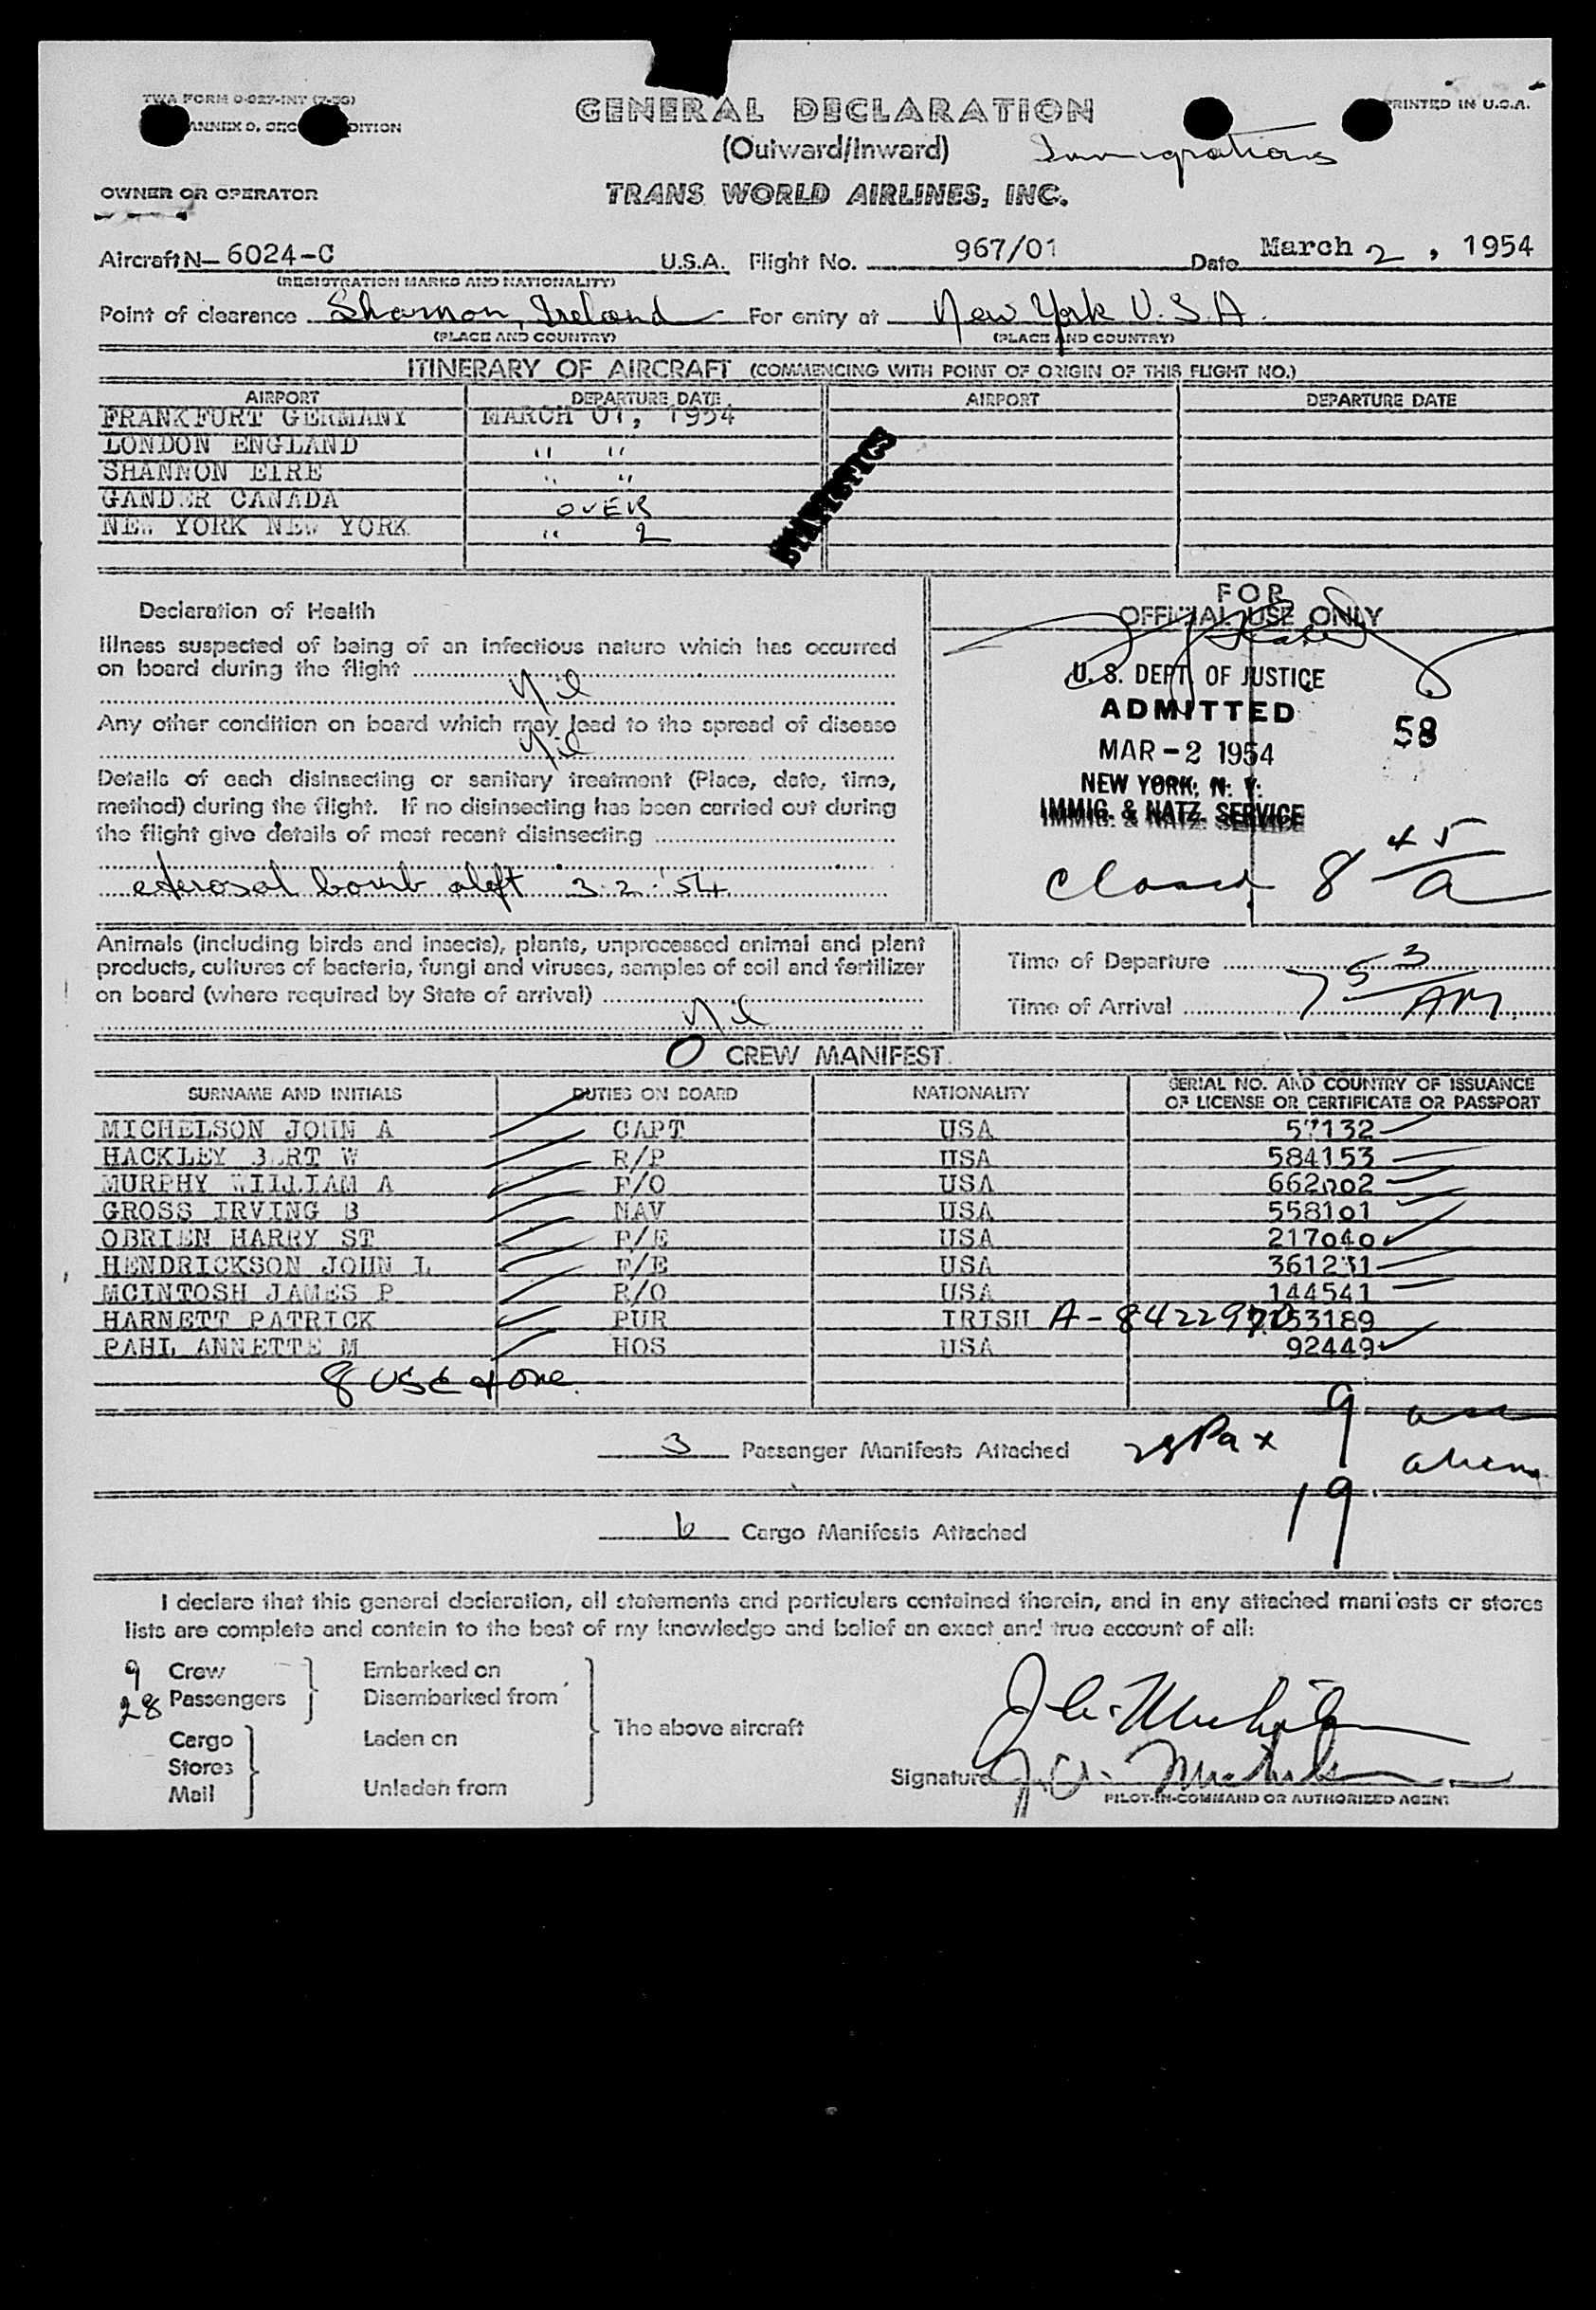 TWA FORM O-027-INT
ANNEX 9, DITION
PRINTED IN U.S.A.
GENERAL DECLARATION
(Outward/Inward)
Immigrations
OWNER OR OPERATOR
TRANS WORLD AIRLINES, INC.
Aircraft N— 6024-C U.S.A. Flight No. 967/01 Date March 2, 1954
(REGISTRATION MARKS AND NATIONALITY)
Point of clearance Shannon, Ireland For entry at New York U.S.A.
(PLACE AND COUNTRY) (PLACE AND COUNTRY)
ITINERARY OF AIRCRAFT (COMMENCING WITH POINT OF ORIGIN OF THIS FLIGHT NO.)
AIRPORT DEPARTURE DATE AIRPORT DEPARTURE DATE
FRANKFURT GERMANY MARCH 01, 1954
LONDON ENGLAND " "
SHANNON EIRE " "
GANDER CANADA OVER
NEW YORK NEW YORK " 2
STATISTICS
Declaration of Health
Illness suspected of being of an infectious nature which has occurred
on board during the flight
Nil
Any other condition on board which may lead to the spread of disease
Nil
Details of each disinsecting or sanitary treatment (Place, date, time,
method) during the flight. If no disinsecting has been carried out during
the flight give details of most recent disinsecting
aerosol bomb aloft 3.2.54
FOR
OFFICIAL USE ONLY
U. S. DEPT. OF JUSTICE
ADMITTED
58
MAR - 2 1954
NEW YORK, N. Y.
IMMIG. & NATZ. SERVICE
Closed 8 45 A
Animals (including birds and insects), plants, unprocessed animal and plant
products, cultures of bacteria, fungi and viruses, samples of soil and fertilizer
on board (where required by State of arrival)
Nil
Time of Departure
Time of Arrival 7 53 AM.
O CREW MANIFEST
SURNAME AND INITIALS DUTIES ON BOARD NATIONALITY SERIAL NO. AND COUNTRY OF ISSUANCE
OF LICENSE OR CERTIFICATE OR PASSPORT
MICHELSON JOHN A CAPT USA 57132
HACKLEY BERT W R/P USA 584153
MURPHY WILLIAM A F/O USA 662002
GROSS IRVING B NAV USA 558101
OBRIEN HARRY ST F/E USA 217040
HENDRICKSON JOHN L F/E USA 361231
MCINTOSH JAMES P R/O USA 144541
HARNETT PATRICK PUR IRISH A-8422970 53189
PAHL ANNETTE M HOS USA 92449
8 USC & one
3 Passenger Manifests Attached 28 Pax 9 usc
19 aliens
6 Cargo Manifests Attached
I declare that this general declaration, all statements and particulars contained therein, and in any attached manifests or stores
lists are complete and contain to the best of my knowledge and belief an exact and true account of all:
9 Crew
28 Passengers
Embarked on
Disembarked from
Cargo
Stores
Mail
Laden on
Unladen from
The above aircraft
J. A. Michelson
Signature J. A. Michelson
PILOT-IN-COMMAND OR AUTHORIZED AGENT